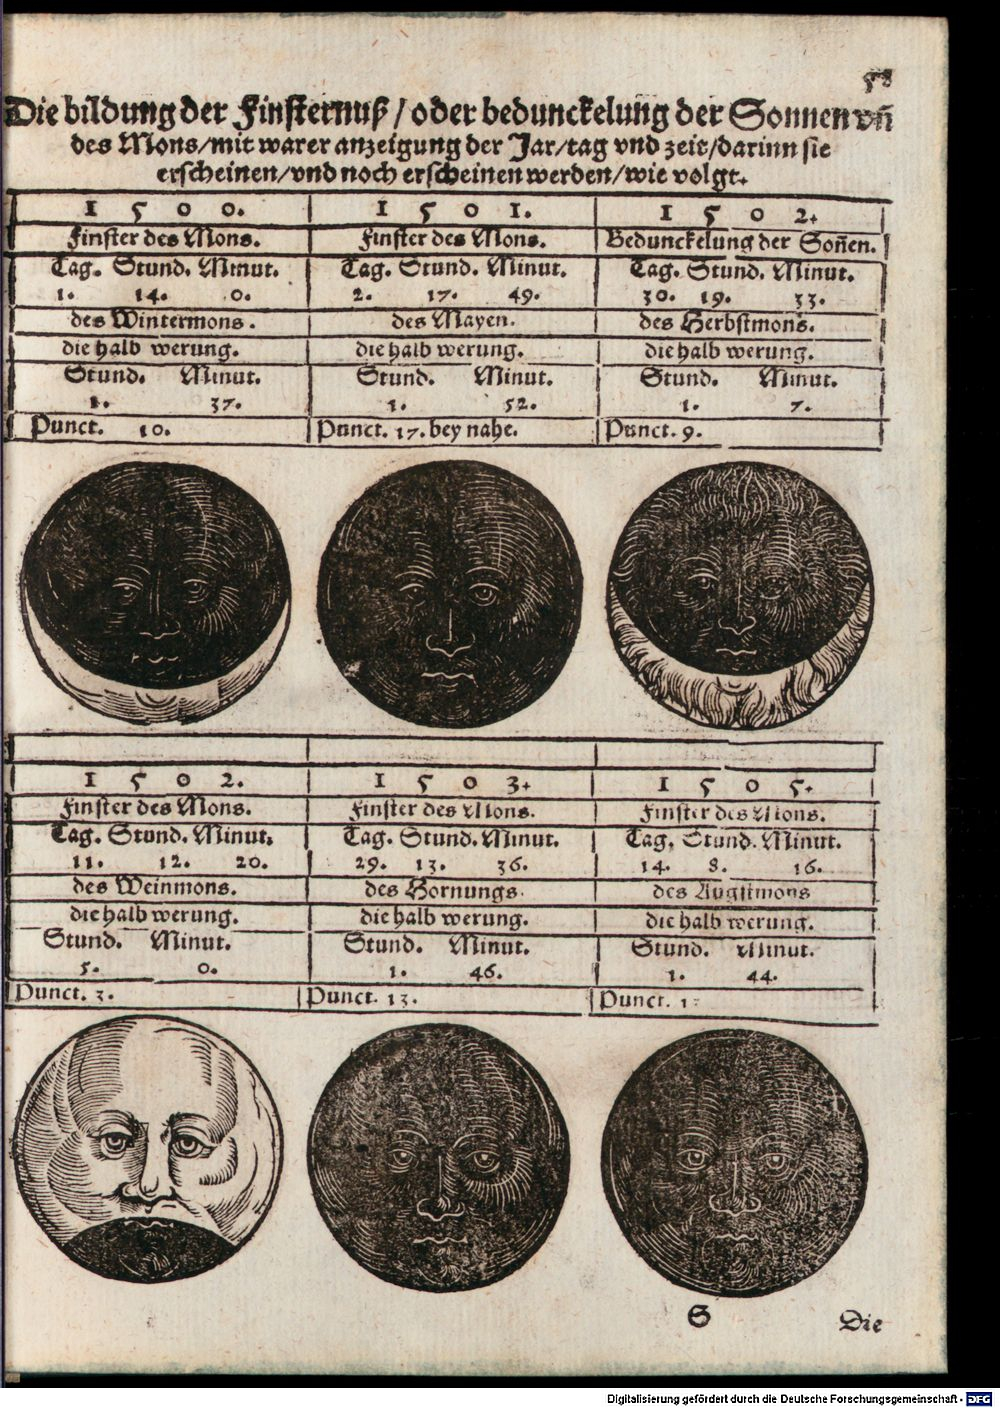 58
Die bildung der Finsternuß / oder bedunckelung der Sonnen vñ
des Mons/mit warer anzeigung der Jar/tag vnd zeit/darinn sie
erscheinen/vnd noch erscheinen werden/wie volgt.
1 5 0 0.
Finster des Mons.
Tag. Stund. Minut.
1. 14. 0.
des Wintermons.
die halb werung.
Stund. Minut.
1. 37.
Punct. 10.
1 5 0 1.
Finster des Mons.
Tag. Stund. Minut.
2. 17. 49.
des Mayen.
die halb werung.
Stund. Minut.
1. 52.
Punct. 17. bey nahe.
1 5 0 2.
Bedunckelung der Soñen.
Tag. Stund. Minut.
30. 19. 33.
des Herbstmons.
die halb werung.
Stund. Minut.
1. 7.
Punct. 9.
1 5 0 2.
Finster des Mons.
Tag. Stund. Minut.
11. 12. 20.
des Weinmons.
die halb werung.
Stund. Minut.
5. 0.
Punct. 3.
1 5 0 3.
Finster des Mons.
Tag. Stund. Minut.
29. 13. 36.
des Hornungs.
die halb werung.
Stund. Minut.
1. 46.
Punct. 13.
1 5 0 5.
Finster des Mons.
Tag. Stund. Minut.
14. 8. 16.
des Augstmons
die halb werung.
Stund. Minut.
1. 44.
Punct.
S
Die
Digitalisierung gefördert durch die Deutsche Forschungsgemeinschaft - DFG